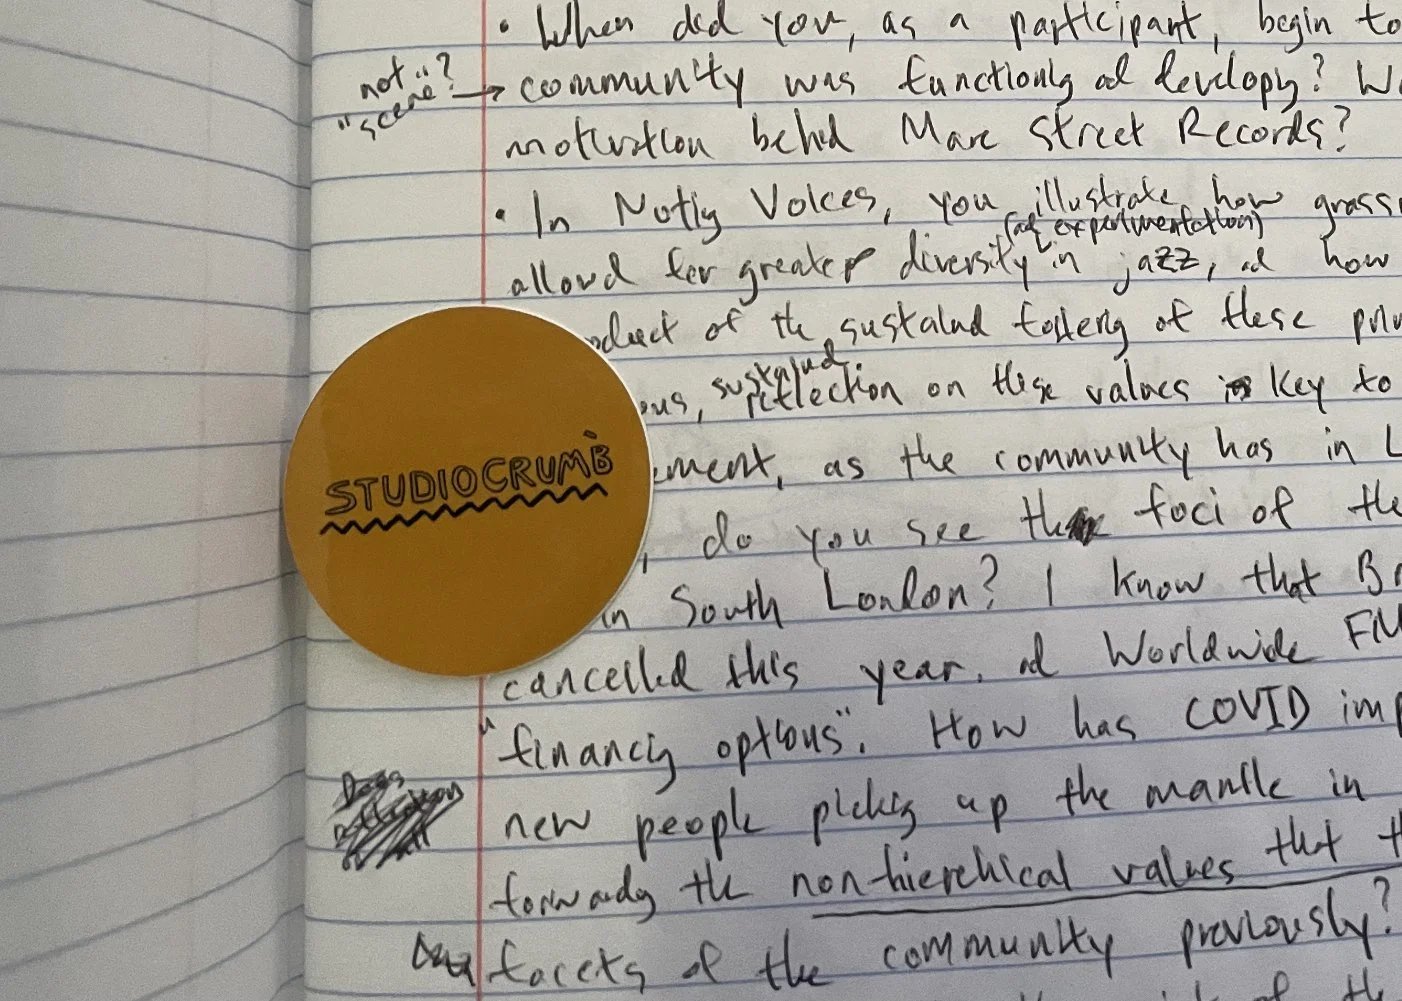 • When did you, as a participant, begin to
not "scene"? → community was functiong ad developg? W
motivation behd Mare Street Records?
• In Notig Voices, you illustrate how grass
(ad experimentation)
allowd for greater diversity in jazz, ad how
oduct of the sustaind fosterg of these prin
sustaind
ous, reflection on these values is key to
ement, as the community has in L
, do you see the foci of the
in South London? I know that Br
cancelled this year, ad Worldwide FM
"financig options". How has COVID imp
new people pickig up the mantle in
forwardg the non-hierchical values that t
facets of the community previously?
of th
STUDIOCRUMB